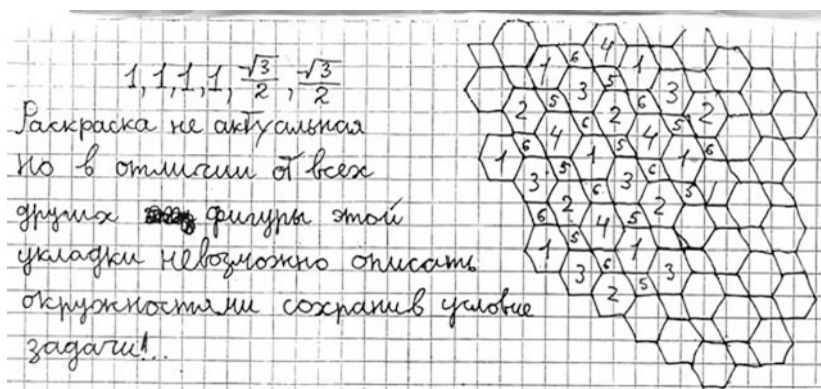 1, 1, 1, 1, √3/2, √3/2
Раскраска не актуальная
но в отличии от всех
других фигуры этой
укладки невозможно описать
окружностями сохранив условие
задачи!..
4
1 6 1
3 5 3
2 5 2 6 2
4 6 4 5
1 6 1 5 1 6
3 5 3 6 5
6 2 6 2
1 5 4 5
3 6 1 3
2 5